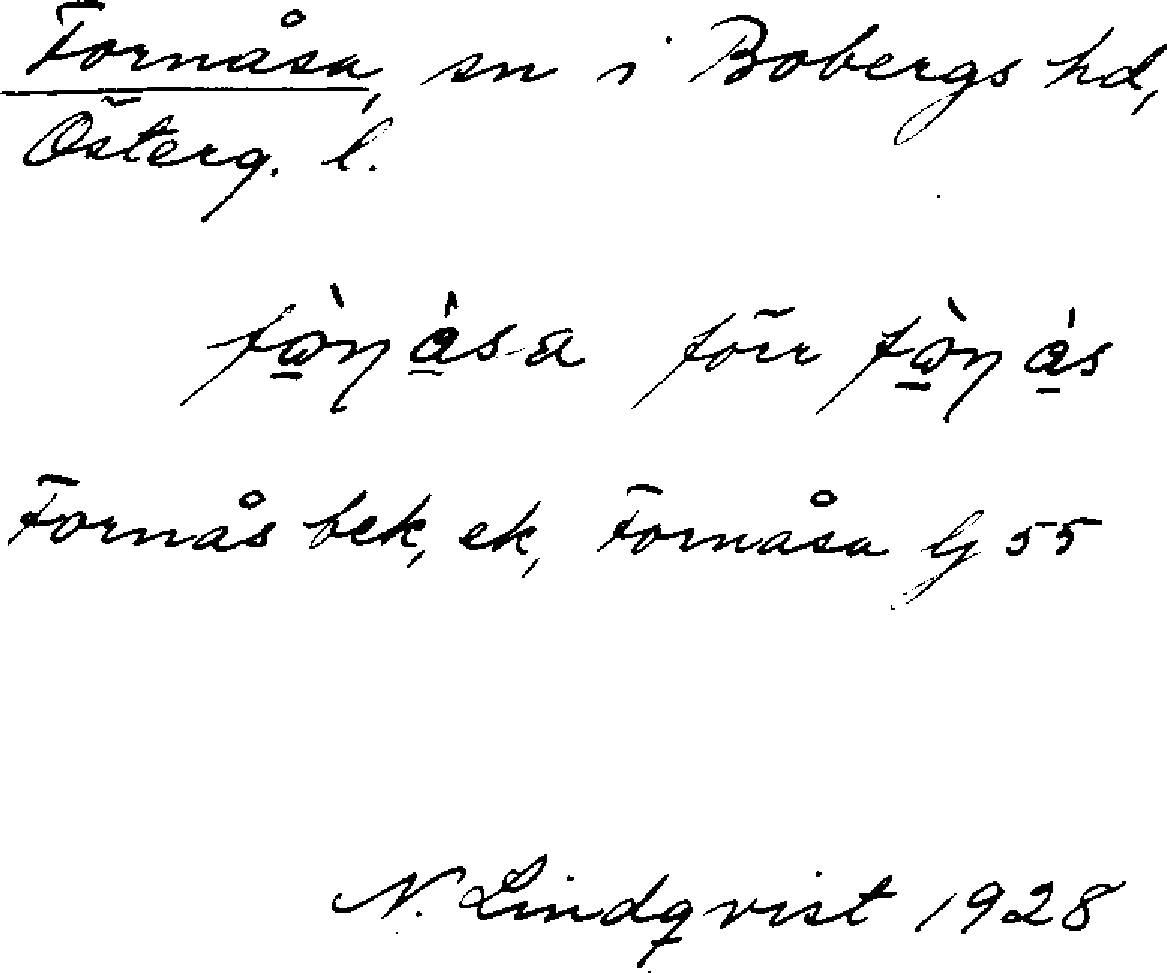 Fornåsa, sn i Bobergs hd,
Österg. l.
förr
Fornås bek, ek, Fornåsa G 55
N. Lindqvist 1928